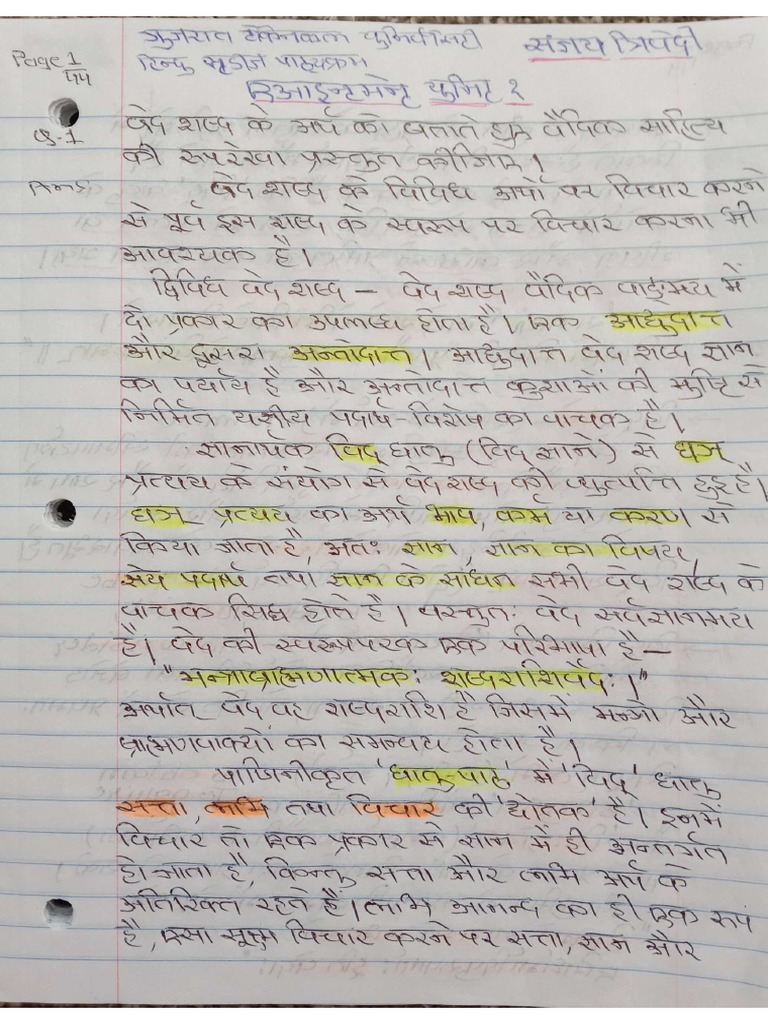 Page 1/44
गुजरात टेकनिकल युनिवर्सिटी संजय त्रिवेदी
हिन्दु स्टडीज पाठ्यक्रम
एसाइन्टमेन्ट युनिट १
Q-1 वेद शब्द के अर्थ को बताते हुए वैदिक साहित्य
की रूपरेखा प्रस्तुत कीजिए।
Ans वेद शब्द के विविध अर्थो पर विचार करने
से पूर्व इस शब्द के स्वरूप पर विचार करना भी
आवश्यक है।
द्विविध वेद शब्द – वेद शब्द वैदिक वाङ्मय में
दो प्रकार का उपलब्ध होता है। एक आद्युदात्त
और दूसरा अन्तोदात्त। आद्युदात्त वेद शब्द ज्ञान
का पर्याय है और अन्तोदात्त कुशाओं की मुष्टि से
निर्मित यज्ञीय पदार्थ-विशेष का वाचक है।
ज्ञानार्थक विद् धातु (विद ज्ञाने) से घञ
प्रत्यय के संयोग से वेद शब्द की व्युत्पत्ति हुइ है।
घञ प्रत्यय का अर्थ भाव, कर्म या करण से
किया जाता है, अतः ज्ञान, ज्ञान का विषय,
ज्ञेय पदार्थ तथा ज्ञान के साधन सभी वेद शब्द के
वाचक सिध्ध होते है। वस्तुतः वेद सर्वज्ञानमय
है। वेद की स्वरूपपरक एक परिभाषा है –
"मन्त्रब्राह्मणात्मकः शब्दराशिर्वेदः।"
अर्थात वेद वह शब्दराशि है जिसमें मन्त्रो और
ब्राह्मणवाक्यों का समन्वय होता है।
पाणिनीकृत 'धातु-पाठ' में 'विद्' धातु
सत्ता, लाभ तथा विचार की 'द्योतक' है। इनमें
विचार तो एक प्रकार से ज्ञान में ही अन्तर्गत
हो जाता है, किन्तु सत्ता और लाभ अर्थ के
अतिरिक्त रहते है। लाभ, आनन्द का ही एक रूप
है, एसा सूक्ष्म विचार करने पर सत्ता, ज्ञान और